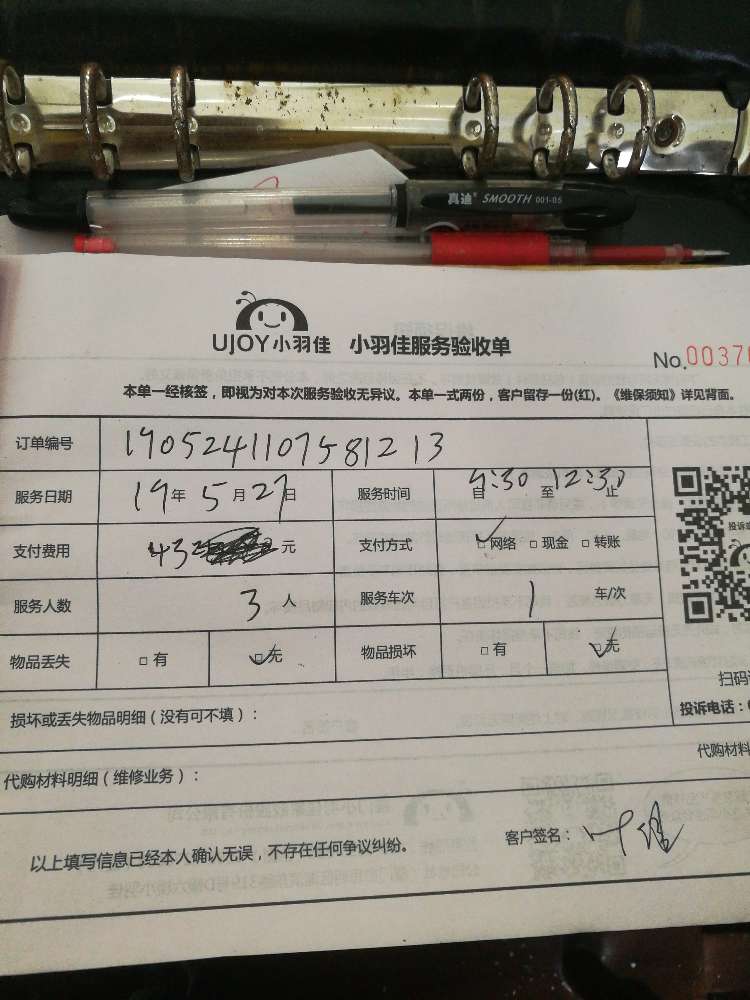 真迪 SMOOTH 001-05
UJOY小羽佳 小羽佳服务验收单
No.0037
本单一经核签，即视为对本次服务验收无异议。本单一式两份，客户留存一份(红)。《维保须知》详见背面。
订单编号 1905241107581213
服务日期 19年5月27日 服务时间 自9:30至12:30止
支付费用 432元 支付方式 □网络 □现金 □转账
服务人数 3人 服务车次 1 车/次
物品丢失 □有 □无 物品损坏 □有 □无
投诉
扫码
损坏或丢失物品明细（没有可不填）：
投诉电话：
代购材料明细（维修业务）：
代购材料
以上填写信息已经本人确认无误，不存在任何争议纠纷。
客户签名：